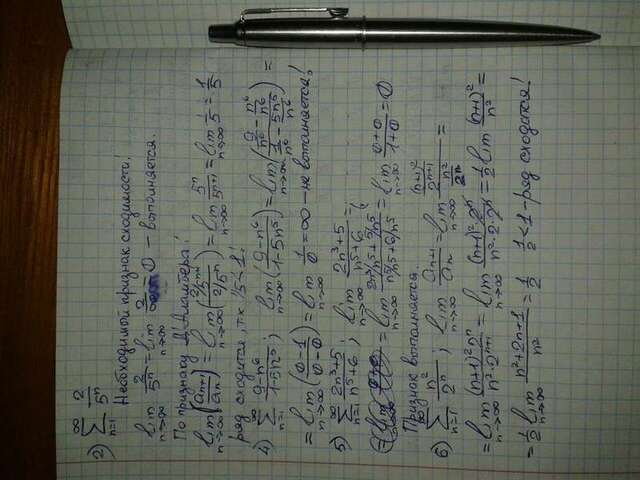 2) ∞∑n=1 2/5ⁿ
Необходимой признак сходимости.
lim n→∞ 2/5ⁿ = lim n→∞ 2/∞ = 0 – выполняется.
По признаку Д'Аламбера:
lim n→∞ (aₙ₊₁/aₙ) = lim n→∞ (2/5ⁿ⁺¹ / 2/5ⁿ) = lim n→∞ 5ⁿ/5ⁿ⁺¹ = lim n→∞ 1/5 = 1/5
ряд сходится, т.к 1/5 < 1.
4) ∞∑n=1 9-n⁶/1-5n⁵; lim n→∞ (9-n⁶/1-5n⁵) = lim n→∞ (9/n⁶ - n⁶/n⁶ / 1/n⁶ - 5n⁵/n⁶) =
= lim n→∞ (0-1/0-0) = lim n→∞ 1/0 = ∞ – не выполняется!
5) ∞∑n=1 2n³+5/n⁵+6; lim n→∞ 2n³+5/n⁵+6 =
= lim n→∞ 2n³/n⁵+5/n⁵ / n⁵/n⁵+6/n⁵ = lim n→∞ 0+0/1+0 = 0
Признак выполняется.
6) ∞∑n=1 n²/2ⁿ; lim n→∞ aₙ₊₁/aₙ = lim n→∞ (n+1)²/2ⁿ⁺¹ / n²/2ⁿ =
= lim n→∞ (n+1)²·2ⁿ/n²·2ⁿ⁺¹ = lim n→∞ (n+1)²·2ⁿ/n²·2·2ⁿ = 1/2 lim n→∞ (n+1)²/n² =
= 1/2 lim n→∞ n²+2n+1/n² = 1/2 1/2 < 1 – ряд сходится!